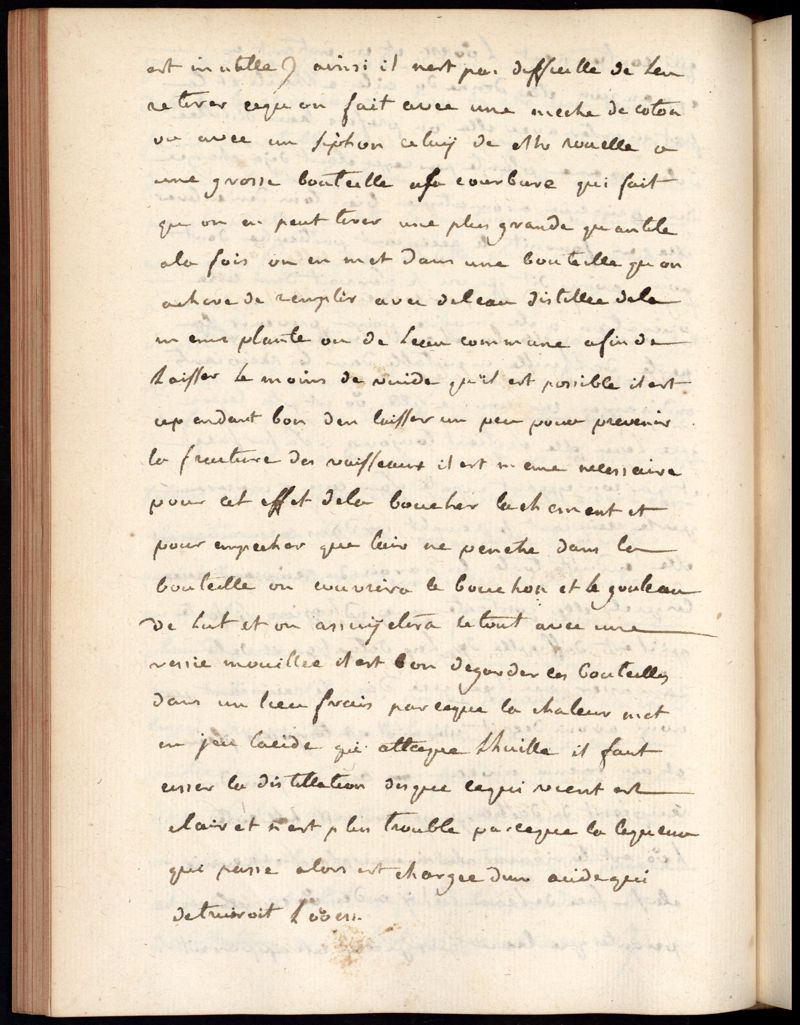 est inutille) ainsi il nest pas difficille de len
retirer cequ on fait avec une meche de coton
ou avec un siphon celuy de Mr rouelle a
une grosse bouteille a sa courbure qui fait
qu on en peut tirer une plus grande quantite
ala fois on en met dans une bouteille qu on
acheve de remplir avec deleau distillee dela
meme plante ou de leau commune afin de
laisser le moins de vuide qu'il est possible il est
cependant bon den laisser un peu pour prevenir
la fracture des vaisseaux il est meme necessaire
pour cet effet dela boucher lachement et
pour empecher que lair ne penetre dans la
bouteille on couvrira le bouchon et le gouleau
de lut et on assujetera letout avec une
vessie mouillee il est bon degarder les bouteilles
dans un lieu frais parceque la chaleur met
en jeu lacide qui attaque lhuille il faut
cesser la distillation desque cequi vient est
clair et nest plus trouble parceque la liqueur
qui passe alors est chargee dun acide qui
detruiroit